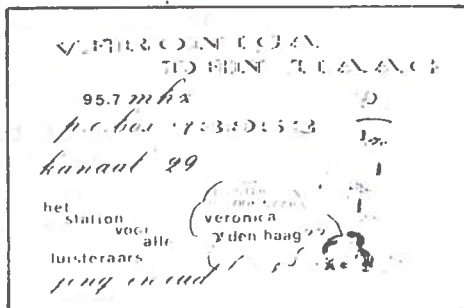 VERONICA
DEN HAAG
95.7 mhz
p.c. box
kanaal 29
het
station
voor
alle
luisteraars
jong en oud
veronica
den haag